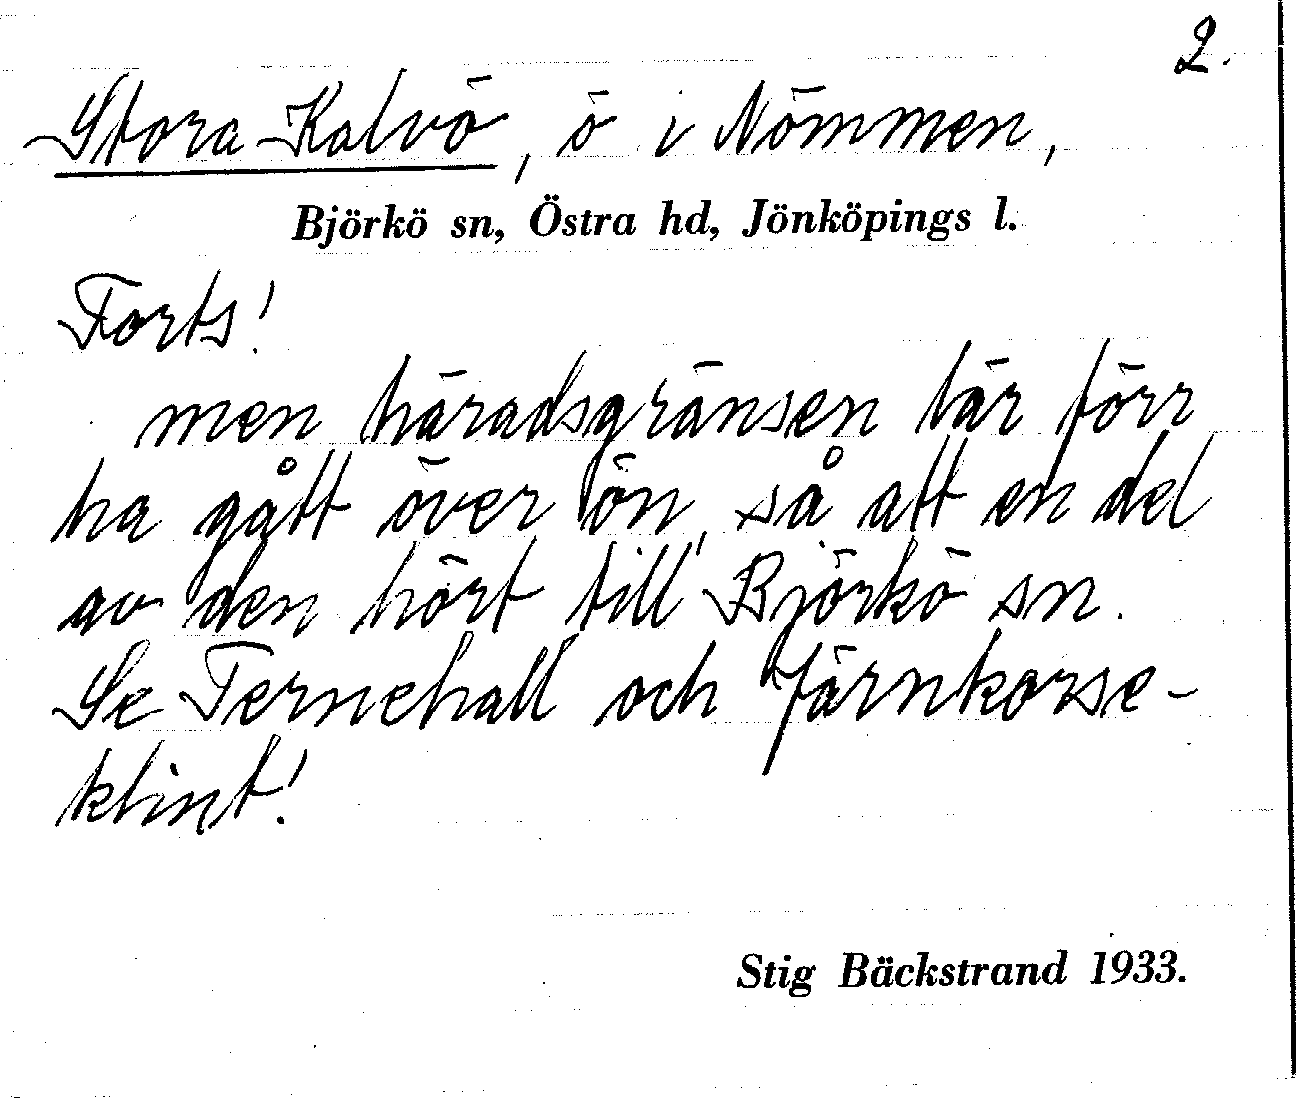 2.
Stora Kalvö, ö i Nömmen,
Björkö sn, Östra hd, Jönköpings l.
Forts!
men häradsgränsen lär förr
ha gått över ön, så att en del
av den hört till Björkö sn.
Se Fernehall och Järnkorse-
klint!
Stig Bäckstrand 1933.